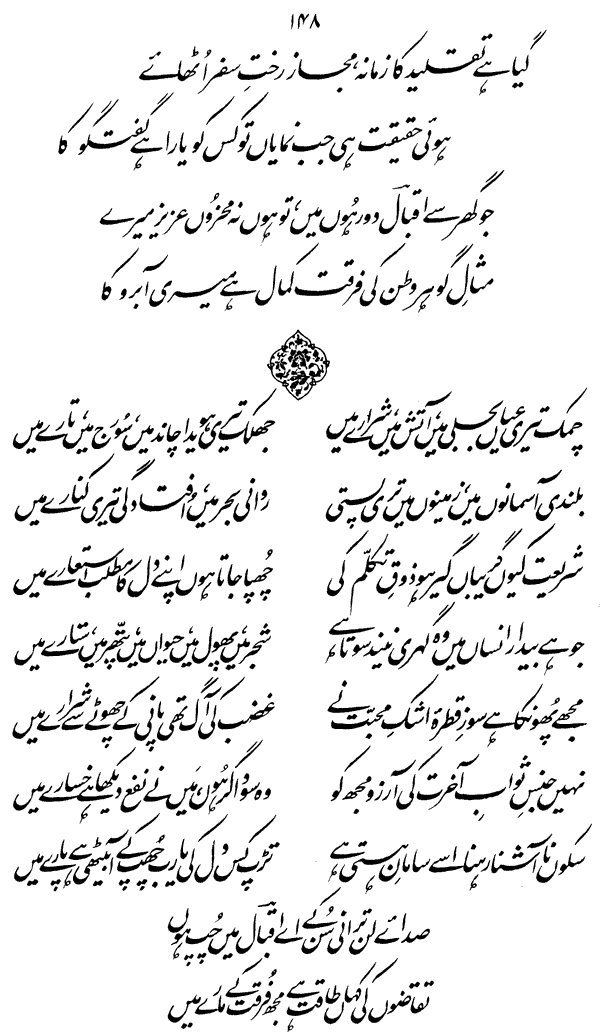 ۱۴۸
گیا ہے تقلید کا زمانہ، مجاز رختِ سفر اُٹھائے
ہوئی حقیقت ہی جب نمایاں تو کس کو یارا ہے گفتگو کا
جو گھر سے اقبالؔ دور ہُوں میں، تو ہوں نہ محزُوں عزیز میرے
مثالِ گوہر وطن کی فرقت کمال ہے میری آبرو کا
چمک تیری عیاں بجلی میں، آتش میں، شرارے میں جھلک تیری ہویدا چاند میں، سُورج میں، تارے میں
بلندی آسمانوں میں، زمینوں میں تری پستی روانی بحر میں، اُفتادگی تیری کنارے میں
شریعت کیوں گریباں گیر ہو ذوقِ تکلّم کی چُھپا جاتا ہوں اپنے دل کا مطلب استعارے میں
جو ہے بیدار انساں میں وہ گہری نیند سوتا ہے شجر میں، پھول میں، حیواں میں، پتھّر میں، ستارے میں
مجھے پُھونکا ہے سوزِ قطرۂ اشکِ محبّت نے غضب کی آگ تھی پانی کے چھوٹے سے شرارے میں
نہیں جنسِ ثوابِ آخرت کی آرزو مجھ کو وہ سوداگر ہُوں، مَیں نے نفع دیکھا ہے خسارے میں
سکوں ناآشنا رہنا اسے سامانِ ہستی ہے تڑپ کس دل کی یارب چُھپ کے آ بیٹھی ہے پارے میں
صدائے لن ترانی سُن کے اے اقبالؔ میں چُپ ہوں
تقاضوں کی کہاں طاقت ہے مجھ فُرقت کے مارے میں